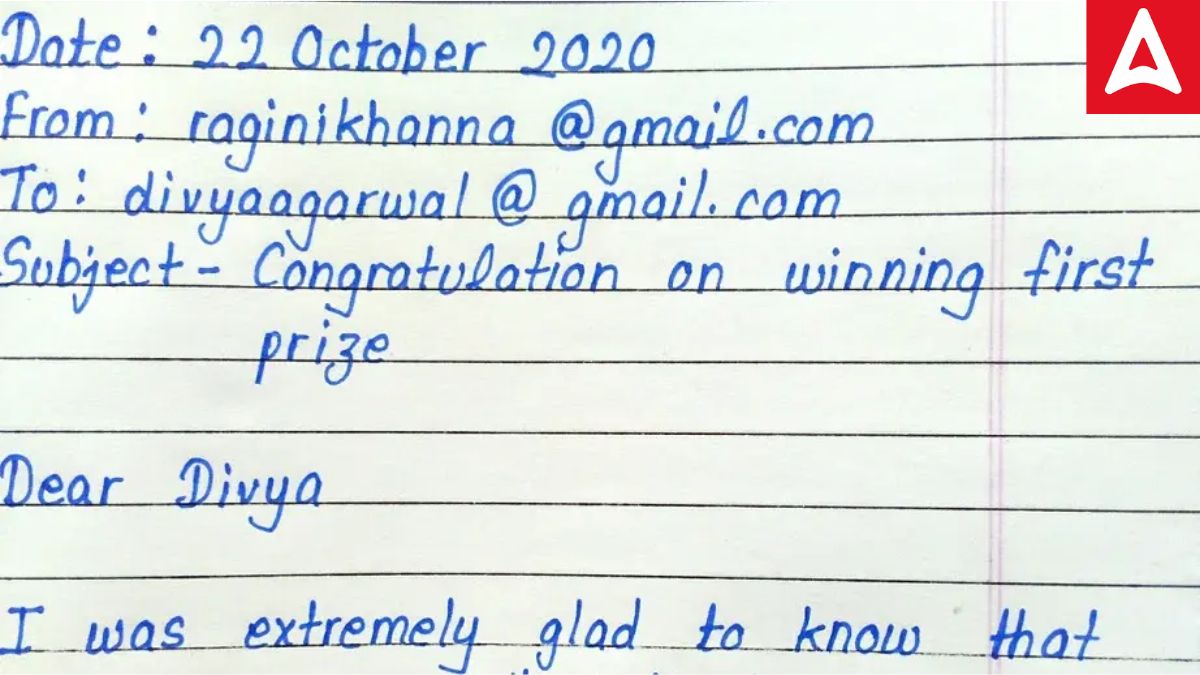 Date : 22 October 2020
From : raginikhanna @gmail.com
To : divyaagarwal @ gmail. com
Subject - Congratulation on winning first
prize
Dear Divya
I was extremely glad to know that